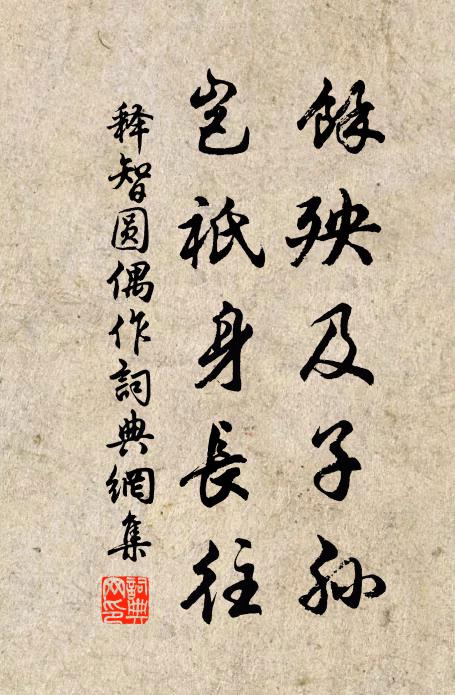 餘殃及子孫
豈祇身長往
释智圆偶作詞典網集
詞典网印